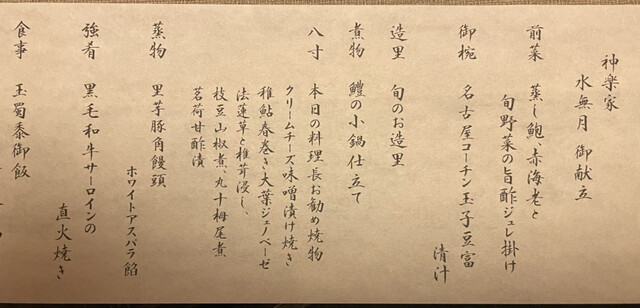 神楽家
水無月 御献立
前菜 蒸し鮑、赤海老と
旬野菜の旨酢ジュレ掛け
御椀 名古屋コーチン玉子豆富
清汁
造里 旬のお造里
煮物 鱧の小鍋仕立て
八寸 本日の料理長お勧め焼物
クリームチーズ味噌漬け焼き
稚鮎春巻き大葉ジェノベーゼ
法蓮草と椎茸浸し、
枝豆山椒煮、丸十梅尾煮
茗荷甘酢漬
蒸物 里芋豚角饅頭
ホワイトアスパラ餡
強肴 黒毛和牛サーロインの
直火焼き
食事 玉蜀黍御飯